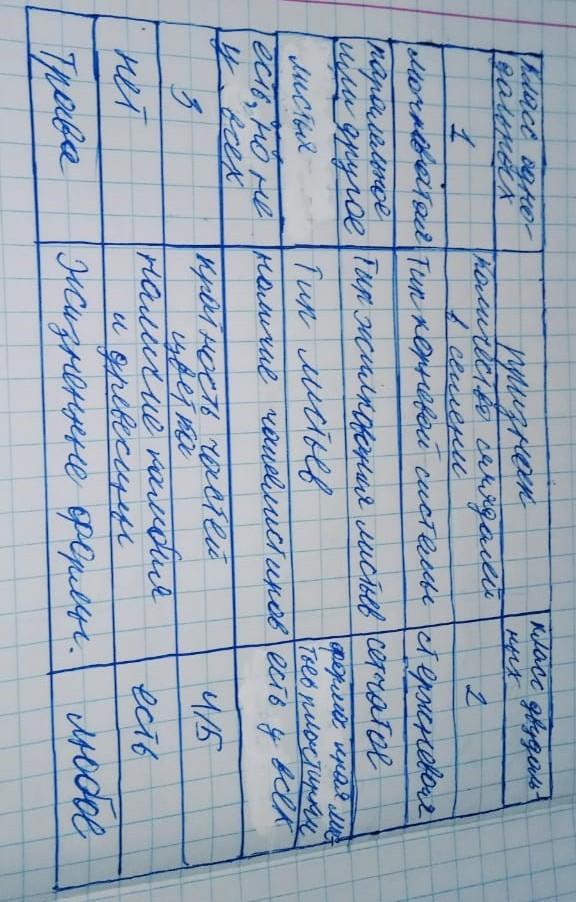 Класс одно-
дольных
признак
класс двудоль
ных
1
количество семядолей
в семени
2
мочковатая
Тип корневой системы
стержневая
паралельное
или другое
Тип жилкования листьев
сетчатое
листья
Тип листьев
форма иная лис-
тьев пластинки
есть, но не
у всех
наличие чашелистиков
есть у всех
3
кратность частей
цветка
4/5
нет
наличие камбия
и древесины
есть
Трава
Жизненные формы.
любое